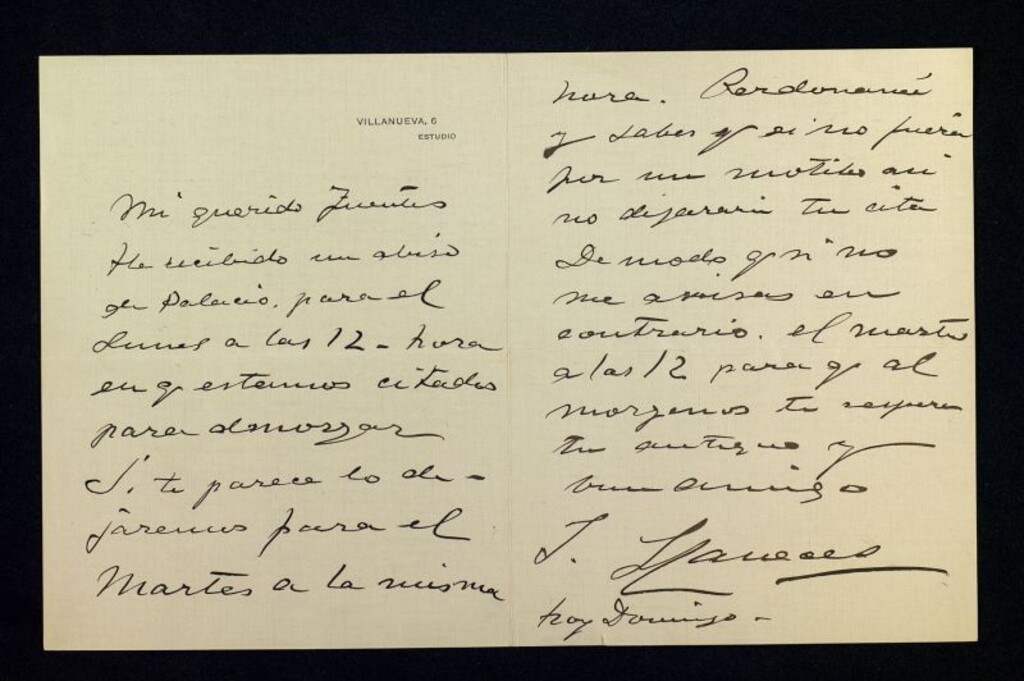 VILLANUEVA, 6
ESTUDIO
Mi querido Fuentes
He recibido un abiso
de Palacio, para el
Lunes a las 12 - hora
en q estamos citados
para almorzar
Si te parece lo de-
jaremos para el
Martes a la misma
hora. Perdoname
y sabes q si no fuera
por un motibo asi
no dejararia tu cita
De modo q si no
me avisas en
contrario. el martes
a las 12 para q al
morzemos te espera
tu antiguo y
buen amigo
J. Llaneces
hoy Domingo -